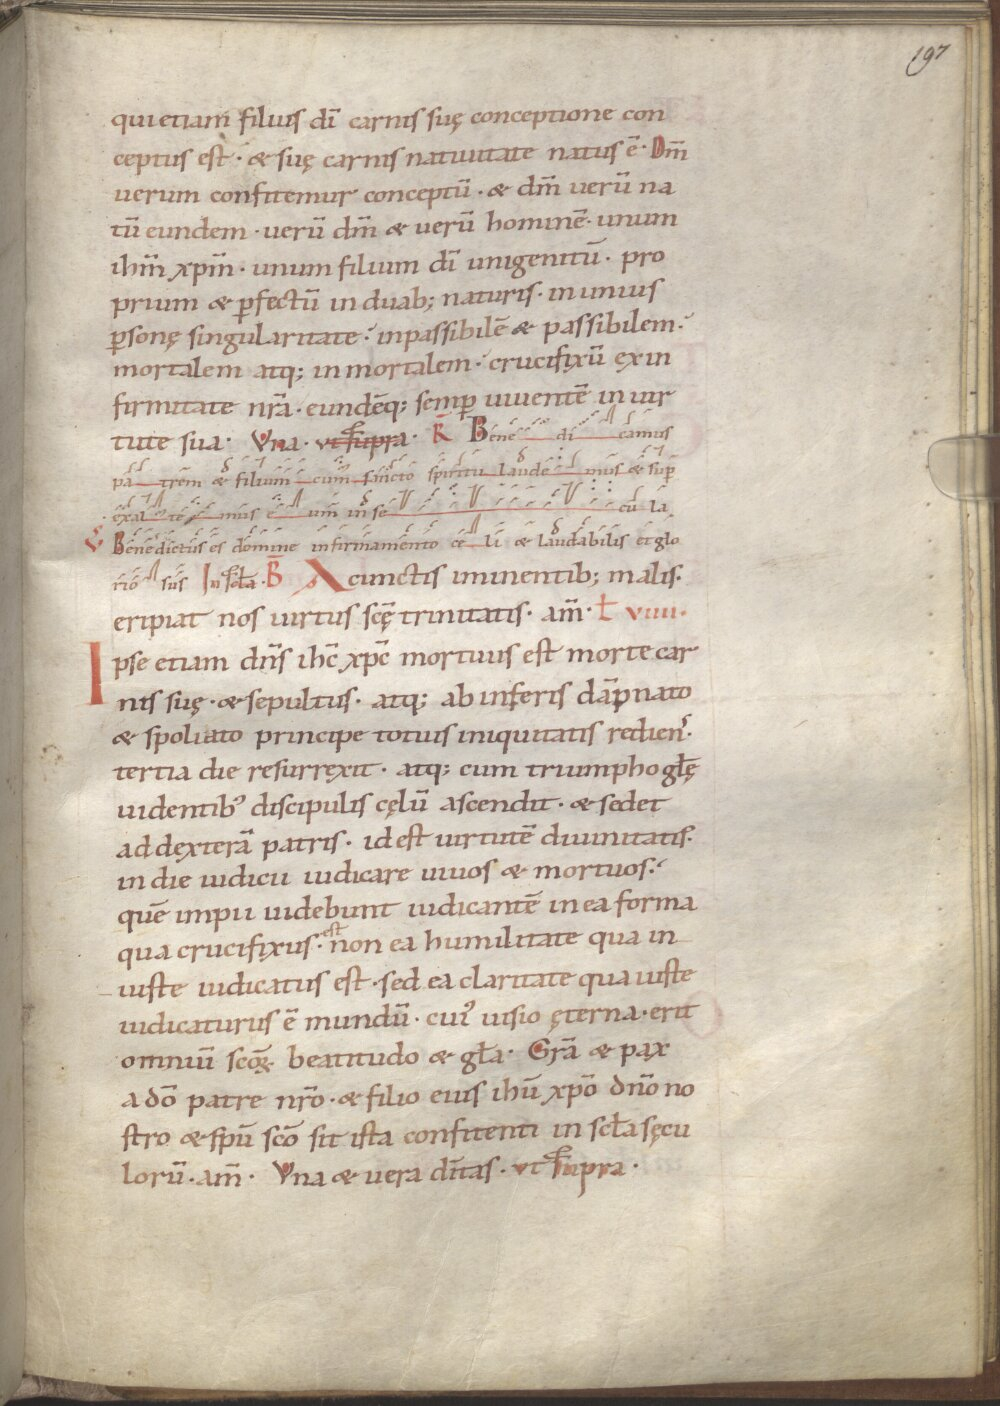 197
qui etiam filius dī carnis suę conceptione con
ceptus est · & suę carnis natiuitate natus ē · Dm̄
uerum confitemur conceptū · & dm̄ uerū na
tū eundem · uerū dm̄ & uerū hominē · unum
ihm̄ xpm̄ · unum filium dī unigenitū · pro
prium & ꝑfectū in duab; naturis · in unius
ꝑsonę singularitate · inpassibilē & passibilem ·
mortalem atq; inmortalem · crucifixū ex in
firmitate nr̄a · eundēq; semꝑ uiuentē in uir
tute sua · Vna · ut supra · R̄ Bene di camus
pa trem & filium cum sancto spiritu laude mus & suꝑ
exal te mus e um in se cu la
V Benedictus es domine in firmamento ce li & laudabilis et glo
rio sus In scła · B̄ A cunctis iminentib; malis ·
eripiat nos uirtus scę̄ trinitatis · am̄ · ł VIIII ·
Ipse etiam dn̄s ihc̄ xpc̄ mortuus est morte car
nis suę · & sepultus · atq; ab inferis dāpnato
& spoliato principe totius iniquitatis redien᷒ ·
tertia die resurrexit · atq; cum triumpho głę
uidentibꝰ discipulis cęlū ascendit · & sedet
ad dexterā patris · id est uirtutē diuinitatis ·
in die iudicii iudicare uiuos & mortuos ·
quē impii uidebunt iudicantē in ea forma
qua crucifixus · est non ea humilitate qua in
iuste iudicatus est · sed ea claritate qua iuste
iudicaturus ē mundū · cuiꝰ uisio ęterna · erit
omniū scōꝝ beatitudo & gła · Gr̄a & pax
a dō patre nr̄o · & filio eius ihū xpō dn̄o no
stro & spū scō sit ista confitenti in scła sęcu
lorū · am̄ · Vna & uera dn̄tas · ut supra ·